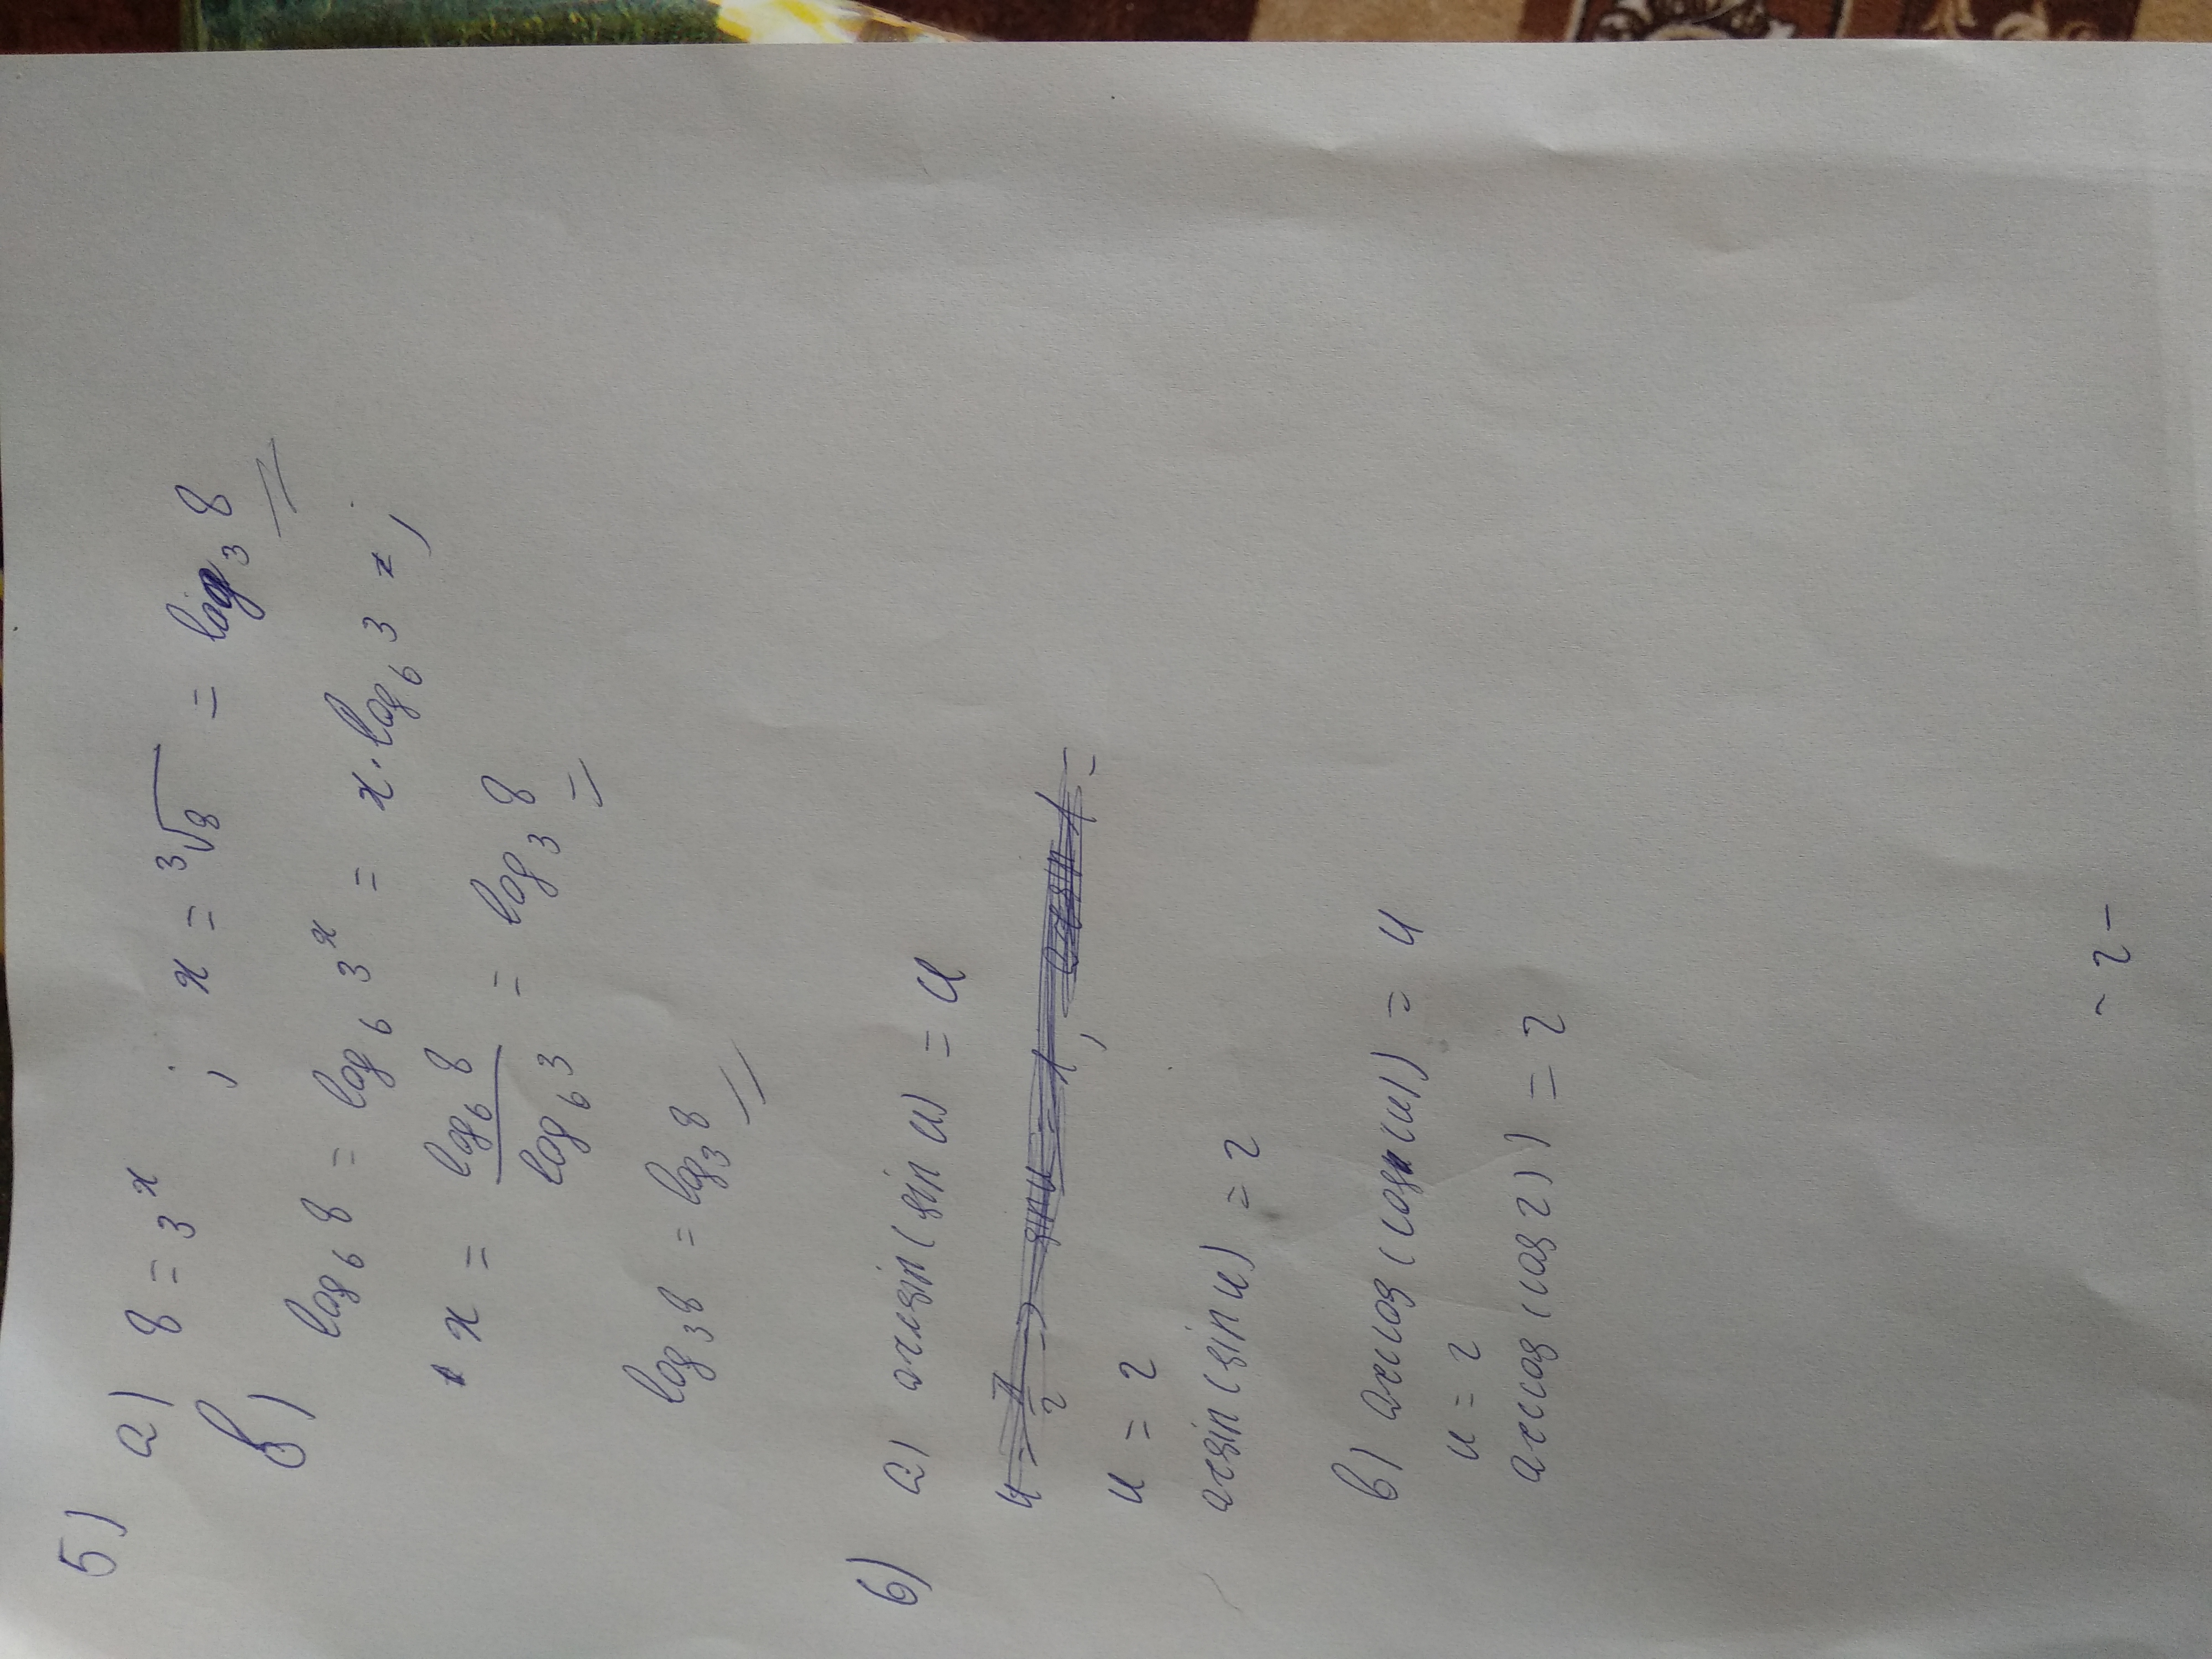 5) a) 8 = 3^x ; x = ∛8 = log₃ 8
b) log₆ 8 = log₆ 3^x = x · log₆ 3 = ;
x = log₆ 8 / log₆ 3 = log₃ 8
log₃ 8 = log₃ 8
6) a) arcsin (sin u) = u
u = 2
arcsin (sin u) = 2
b) arccos (cos u)) = u
u = 2
arccos (cos 2)) = 2
- 2 -